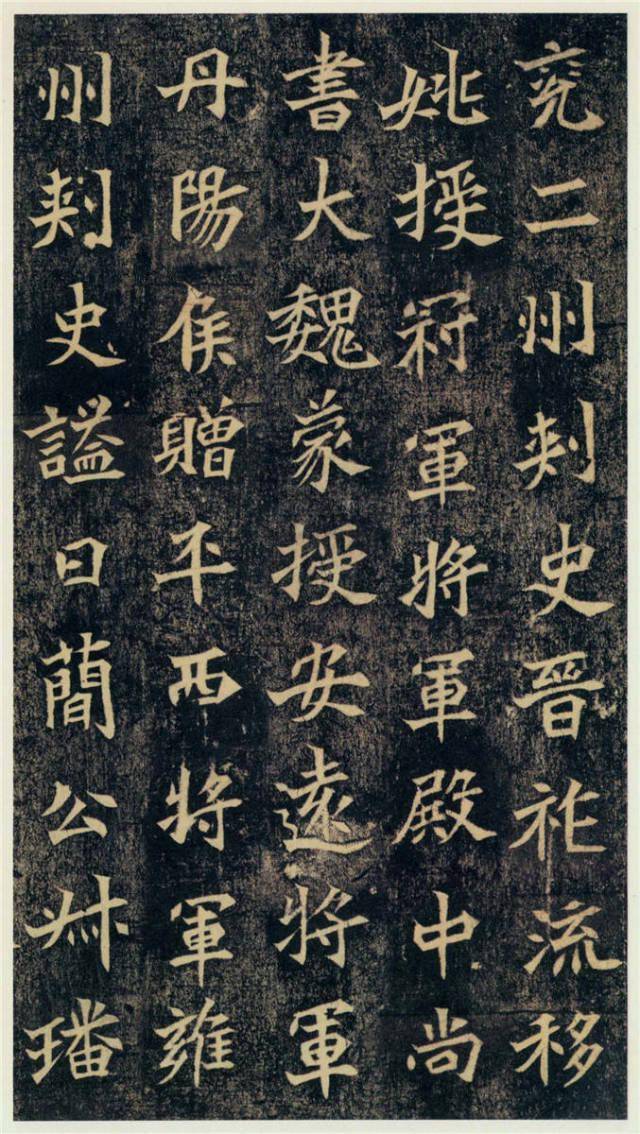 兖二州刺史晋祚流移
姚授冠軍將軍殿中尚
書大魏蒙授安遠將軍
丹陽侯贈平西將軍雍
州刺史謚曰蕳公叔璠